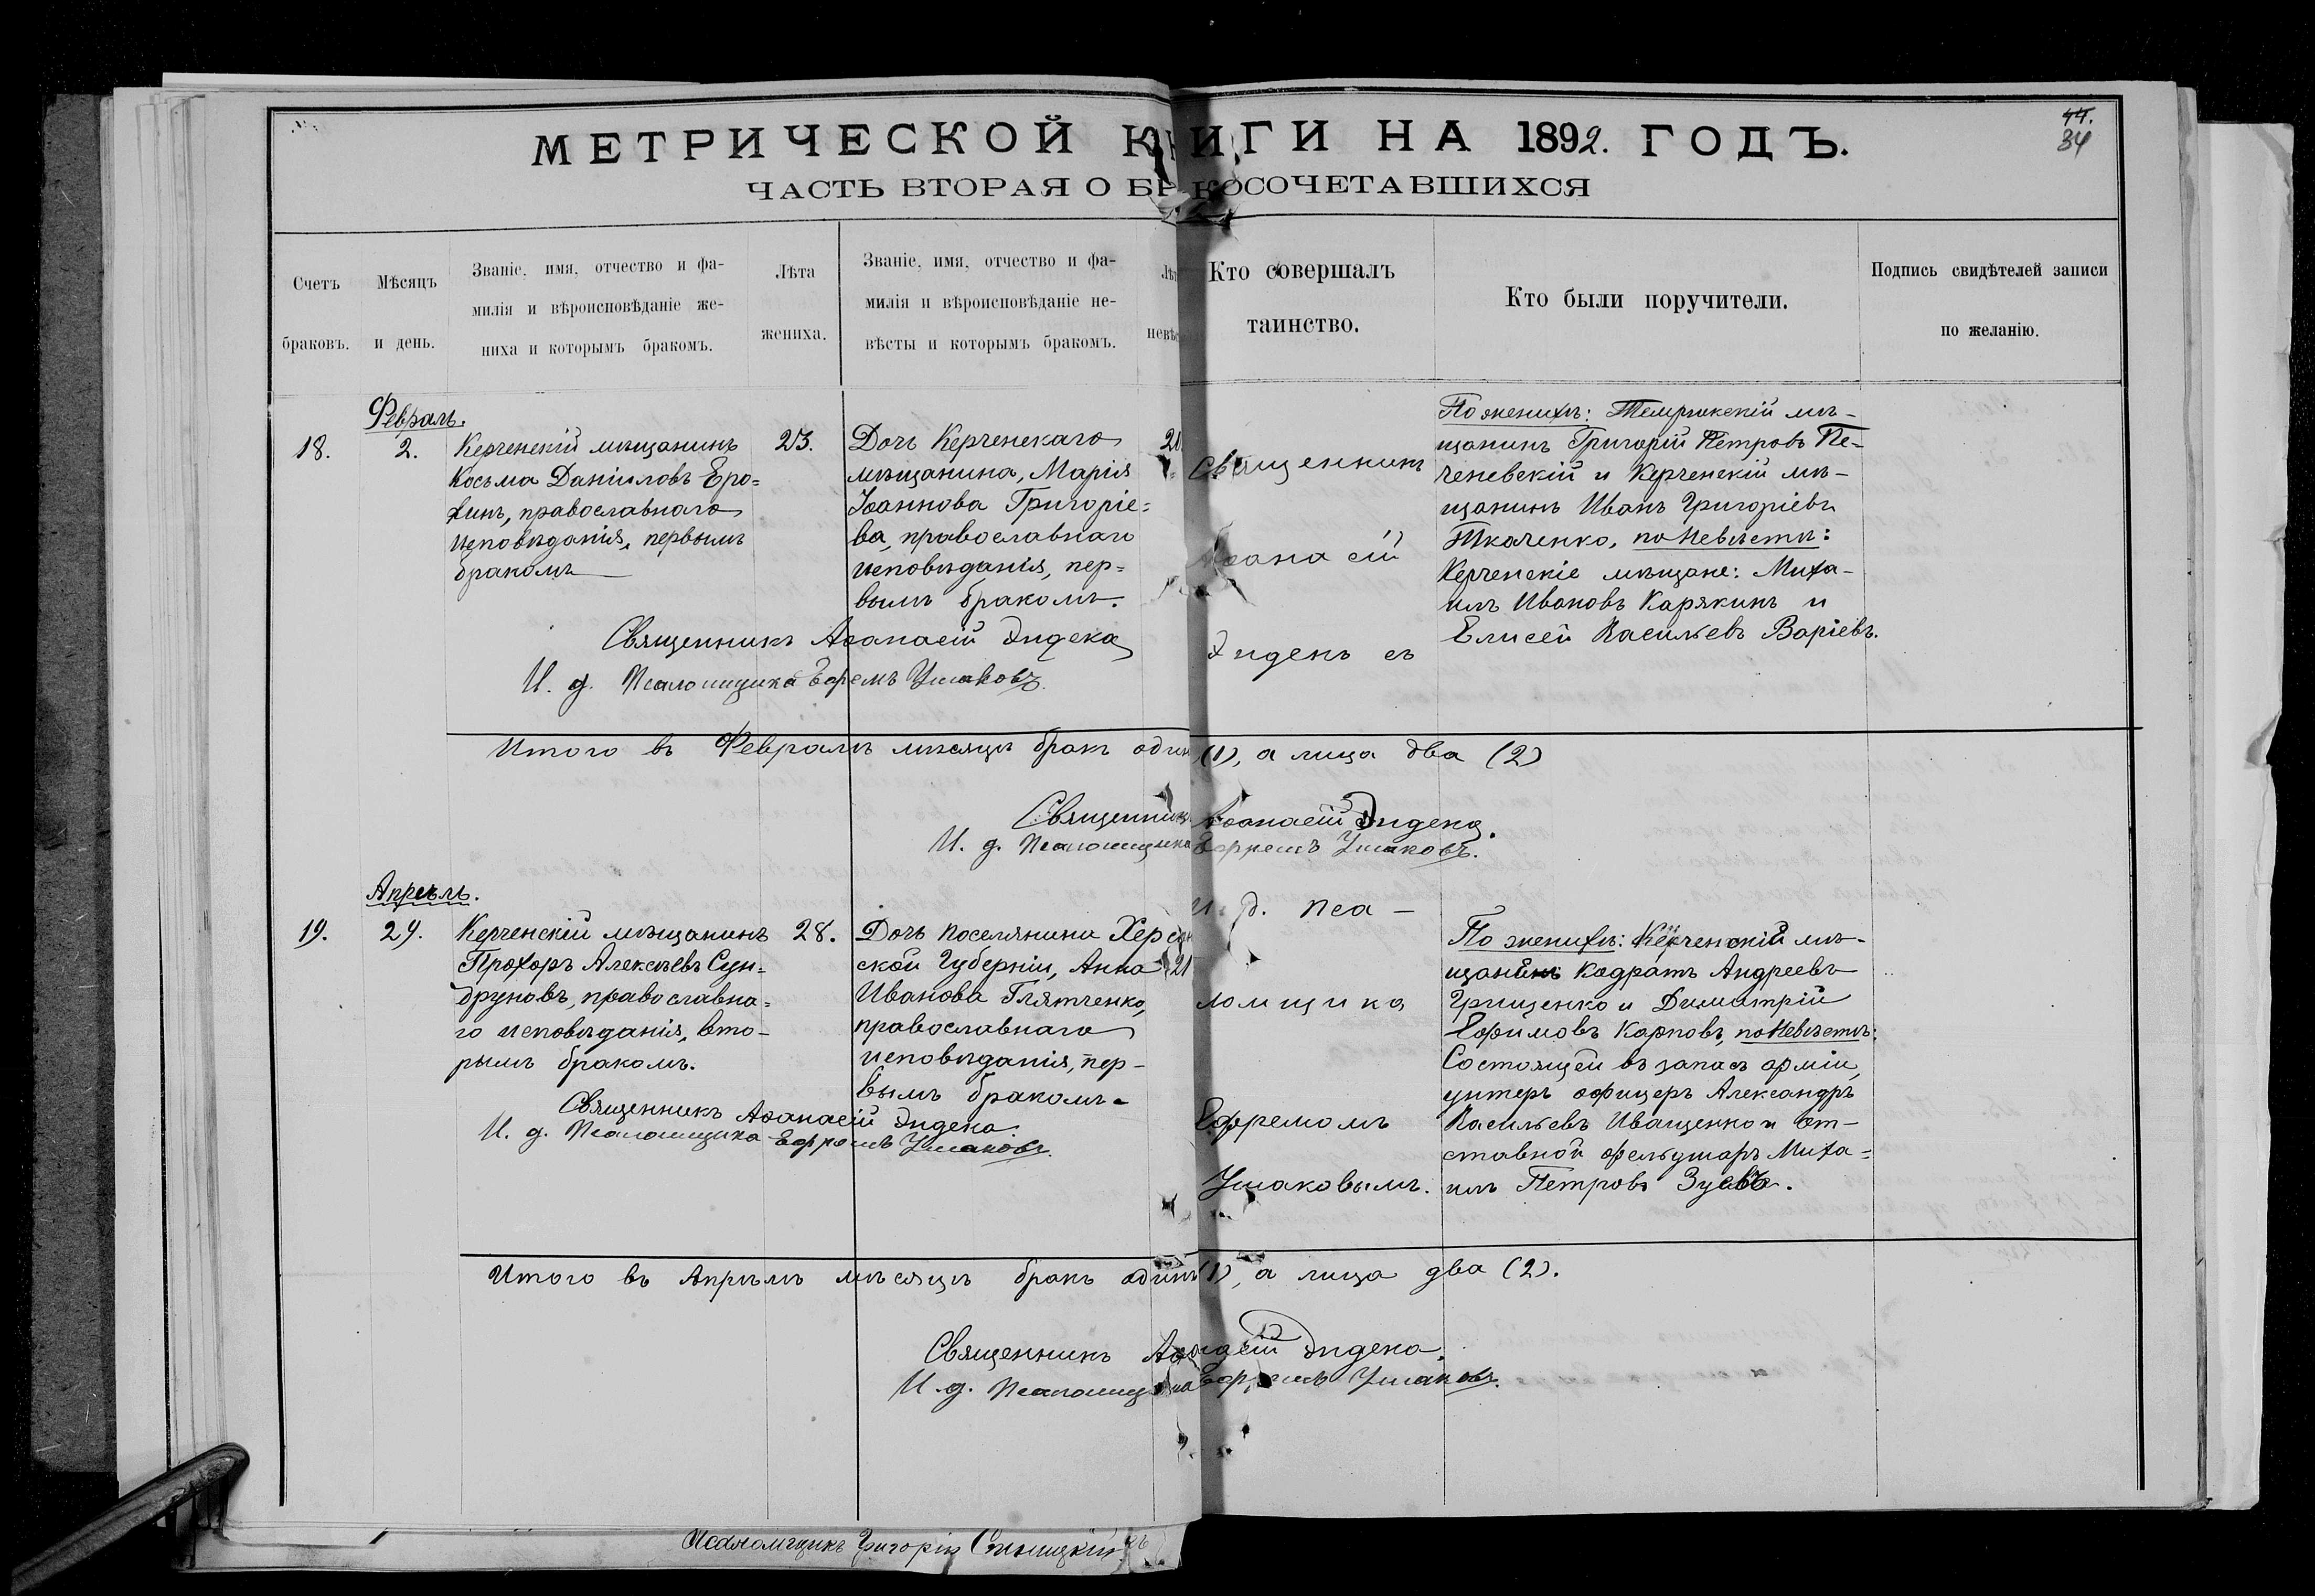 44.
34
МЕТРИЧЕСКОЙ КНИГИ НА 1892. ГОДЪ.
ЧАСТЬ ВТОРАЯ О БРАКОСОЧЕТАВШИХСЯ
Счетъ
браковъ.
Мѣсяцъ
и день.
Званіе, имя, отчество и фа-
милія и вѣроисповѣданіе же-
ниха и которымъ бракомъ.
Лѣта
жениха.
Званіе, имя, отчество и фа-
милія и вѣроисповѣданіе не-
вѣсты и которымъ бракомъ.
Лѣт
невѣс
Кто совершалъ
таинство.
Кто были поручители.
Подпись свидѣтелей записи
по желанію.
Февраль.
18.
2.
Керченскій мѣщанинъ
Косьма Даніиловъ Еро=
хинъ, православнаго
исповѣданія, первымъ
бракомъ
23.
Дочь Керченскаго
мѣщанина, Марія
Іоаннова Григоріе=
ва, православнаго
исповѣданія, пер=
вымъ бракомъ.
Священникъ
Аѳанасій
Дидек съ
По женихѣ: Темрюкскій мѣ-
щанинъ Григорій Петровъ Пе-
ченевскій и Керченскій мѣ-
щанинъ Иванъ Григоріевъ
Ткаченко, по невѣстѣ:
Керченскіе мѣщане: Миха-
илъ Ивановъ Карякинъ и
Елисей Васильев Варіевъ.
Священникъ Аѳанасій Дидека
И. д. Псаломщика Ефремъ Ушаковъ.
Итого въ Февралѣ мѣсяцѣ бракъ один (1), а лица два (2)
Священникъ Аѳанасій Дидека.
И. д. Псаломщика Ефремъ Ушаковъ.
Апрѣль.
19.
24.
Керченскій мѣщанинъ
Прохоръ Алексѣевъ Сун=
друновъ, православна=
го исповѣданія, вто-
рымъ бракомъ.
28.
Дочь поселянина Херсон
ской Губерніи, Анна
Иванова Глятченко,
православнаго
исповѣданія, пер-
вымъ бракомъ.
21
И. д. пса-
ломщика
Ефремомъ
Ушаковымъ.
По женихѣ: Керченскій мѣ-
щанинъ Кодратъ Андреевъ
Грищенко и Димитрій
Ефимовъ Карповъ, по невѣстѣ:
Состоящей въ запасѣ арміи,
унтеръ офицеръ Александръ
Васильевъ Иващенко и От-
ставной фельдшаръ Миха=
илъ Петровъ Зуевъ.
Священникъ Аѳанасій Дидека
И. д. Псаломщика Ефремъ Ушаковъ.
Итого въ Апрѣлѣ мѣсяцѣ бракъ одинъ (1), а лица два (2).
Священникъ Аѳанасій Дидека.
И. д. Псаломщика Ефремъ Ушаковъ.
Псаломщикъ Григорій